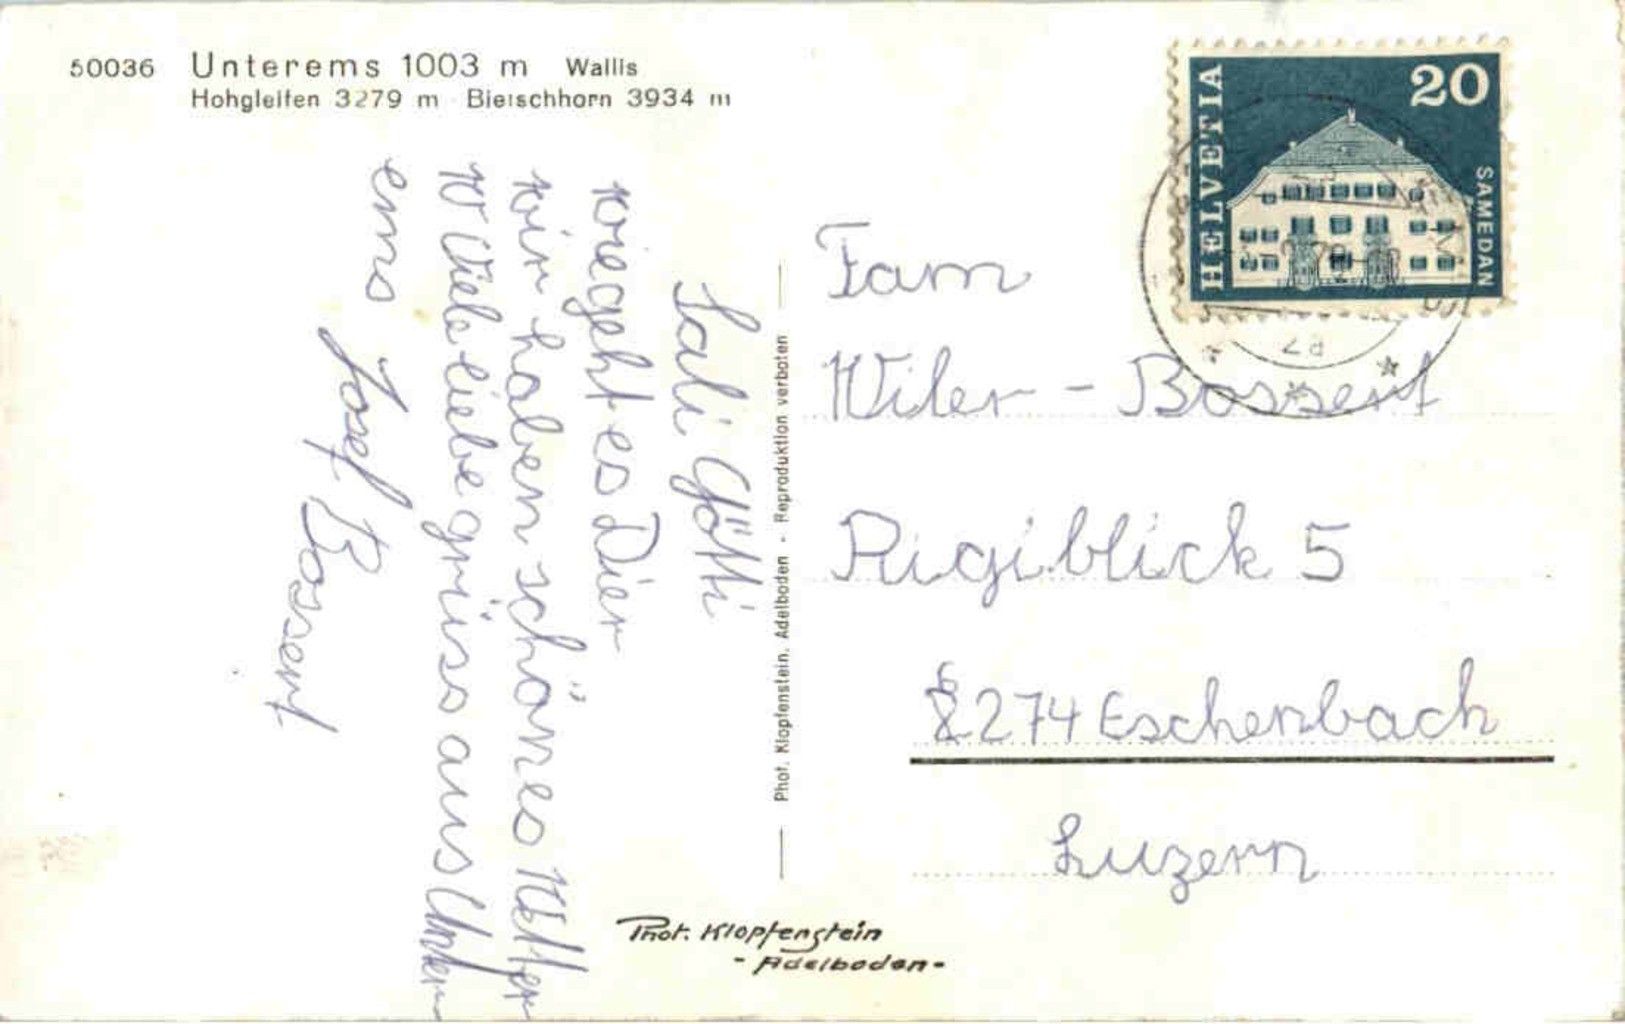 50036 Unterems 1003 m Wallis
Hohgleifen 3279 m Bietschhorn 3934 m
HELVETIA
20
SAMEDAN
Sali Götti
wiegeht es Dier
wir haben schönes Wetter
Viele liebe grüss aus Unter
ems
Josef Bossert
Phot. Klopfenstein, Adelboden - Reproduktion verboten
Fam
Wiler - Bossert
Rigiblick 5
6274 Eschenbach
Luzern
Phot. Klopfenstein
- Adelboden -